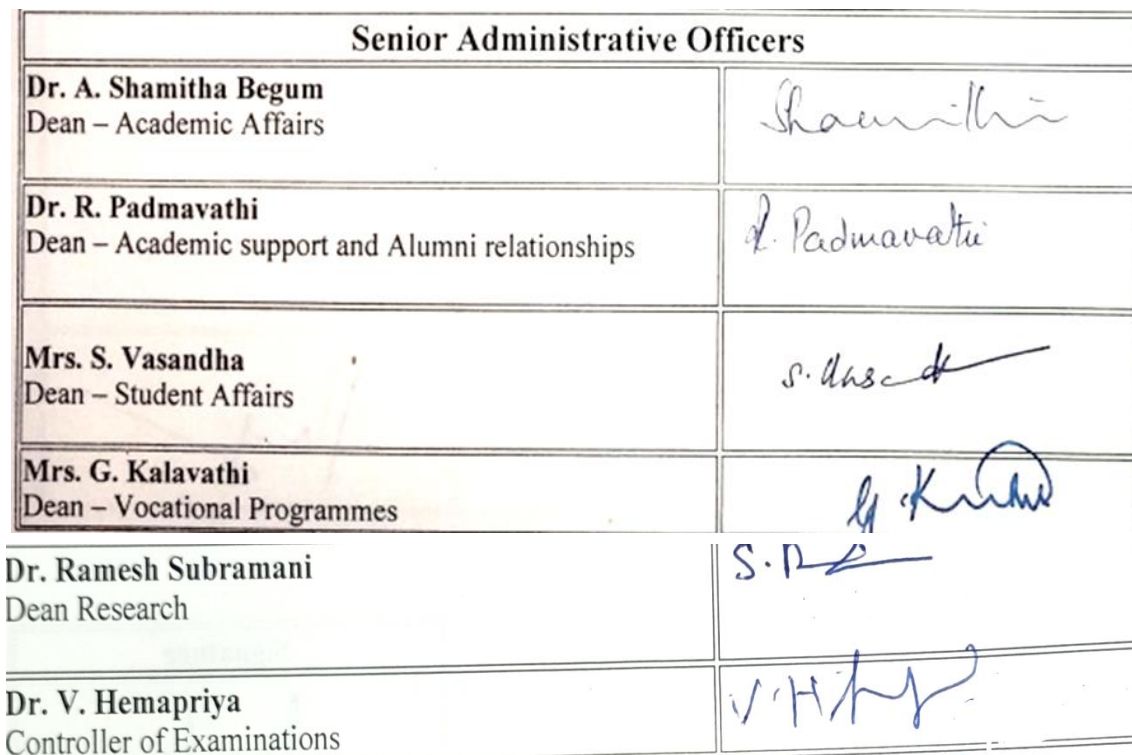 Senior Administrative Officers
Dr. A. Shamitha Begum
Dean – Academic Affairs
Shamitha
Dr. R. Padmavathi
Dean – Academic support and Alumni relationships
R. Padmavathi
Mrs. S. Vasandha
Dean – Student Affairs
S.
Mrs. G. Kalavathi
Dean – Vocational Programmes
G.
Dr. Ramesh Subramani
Dean Research
S.
Dr. V. Hemapriya
Controller of Examinations
V. H